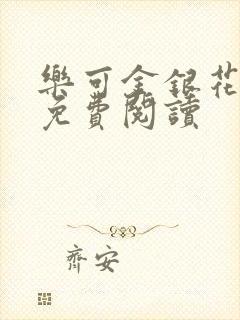 樂可金銀花
免費閱讀
齊安